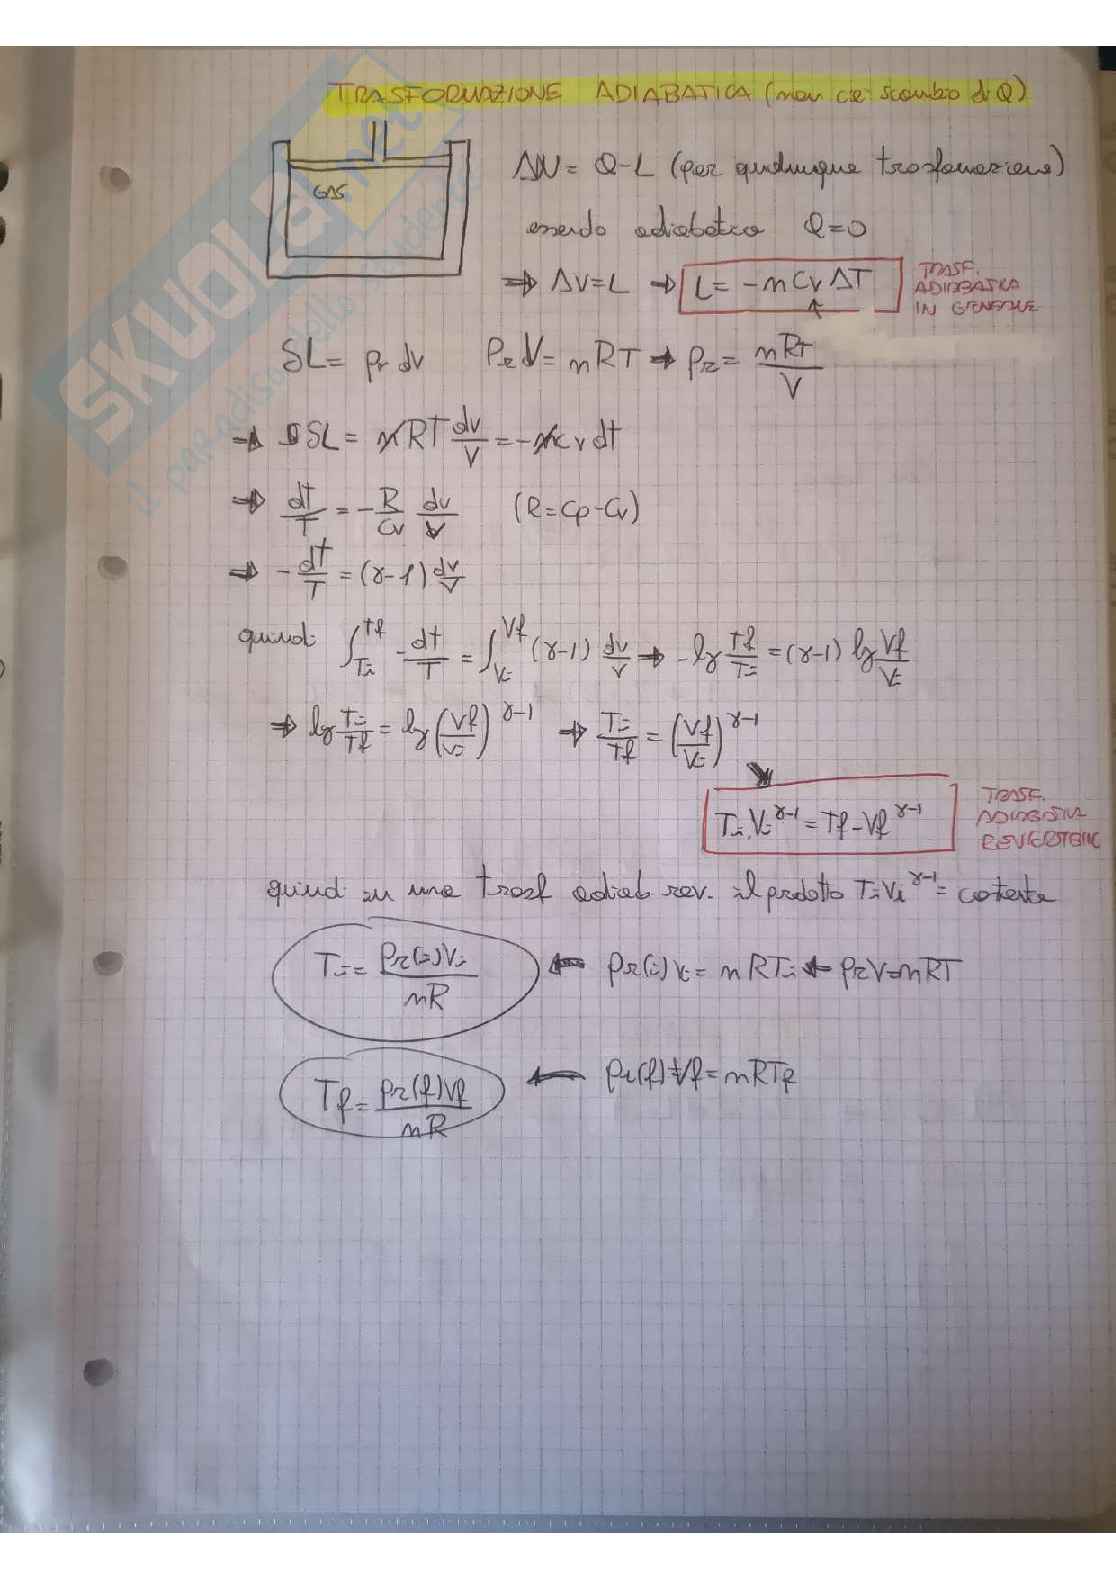 TRASFORMAZIONE ADIABATICA (non c'è scambio di Q)
GAS
ΔU = Q-L (per qualunque trasformazione)
essendo adiabatica Q=0
⇒ ΔU=L → L = -nCvΔT
TRASF. ADIABATICA IN GENERALE
δL = pr dv Pr V = nRT → Pr = nRT/V
→ δL = nRT dv/V = -ncv dt
⇒ dt/T = -R/Cv dv/V (R=Cp-Cv)
⇒ -dt/T = (γ-1) dv/V
quindi ∫Ti^Tf -dt/T = ∫Vi^Vf (γ-1) dv/V → -lg Tf/Ti = (γ-1) lg Vf/Vi
⇒ lg Ti/Tf = lg (Vf/Vi)^γ-1 ⇒ Ti/Tf = (Vf/Vi)^γ-1
Ti.Vi^γ-1 = Tf-Vf^γ-1
TRASF. ADIABATICA REVERSIBILE
quindi in una trasf adiab rev. il prodotto TiVi^γ-1 = costante
Ti = Pr(i)Vi/nR ← Pr(i)Vi = nRTi ← PrV=nRT
Tf = Pr(f)Vf/nR ← Pr(f)Vf = nRTf
SKUOLA.net
il paradiso dello studente